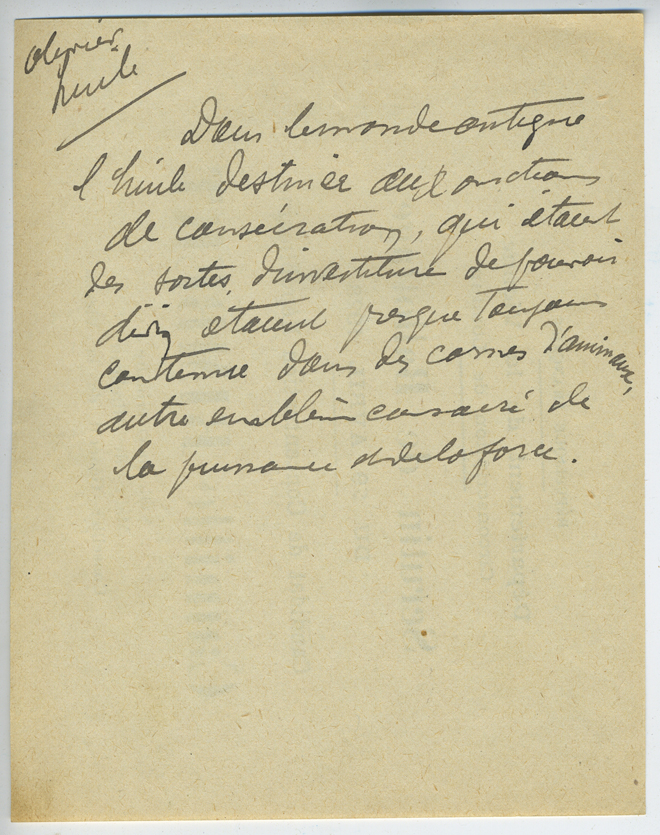 olivier
huile
Dans le monde antique
l'huile destinée aux onctions
de consécration, qui étaient
des sortes d'investiture de pouvoir
divin étaient presque toujours
contenue dans des cornes d'animaux,
autre emblème consacré de
la puissance et de la force.